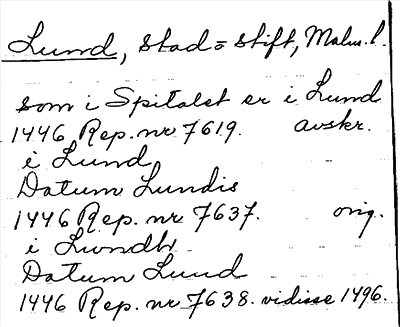 Lund, stad o stift, Malm. l.
som i Spitalet er i Lund
1446 Rep. nr 7619. avskr.
i Lund
Datum Lundis
1446 Rep. nr 7637. orig.
i Lwndh
Datum Lund
1446 Rep. nr 7638. vidisse 1496.